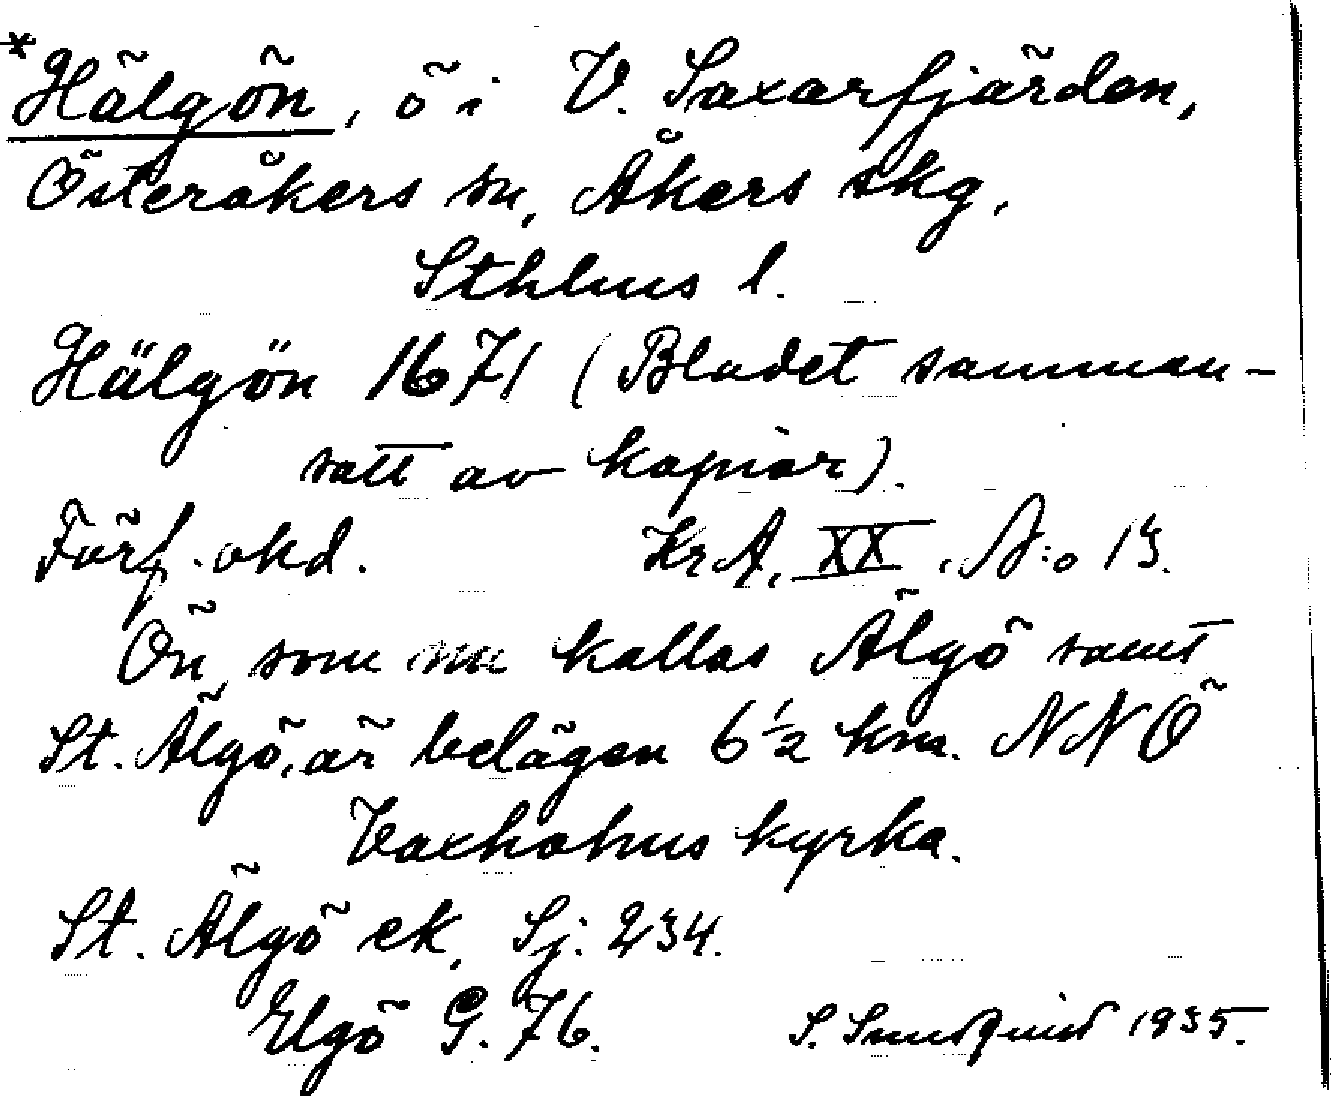 *Hälgön, ö i V. Saxarfjärden,
Österåkers sn, Åkers skg,
Sthlms l.
Hälgön 1671 (Bladet samman-
satt av kopior).
Förf. okd. KrA, XX, N:o 13.
Ön, som nu kallas Älgö samt
St. Älgö, är belägen 6 1/2 km. NNÖ
Vaxholms kyrka.
St. Älgö ek, Sj. 234.
Elgö G. 76. S. Sundquist 1935.